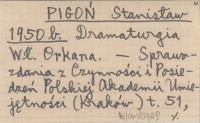 PIGOŃ Stanisław
1950 b. Dramaturgia
Wł. Orkana. — Sprawo-
zdania z Czynności i Posie-
dzeń Polskiej Akademii Umie-
jętności (Kraków) t. 51,